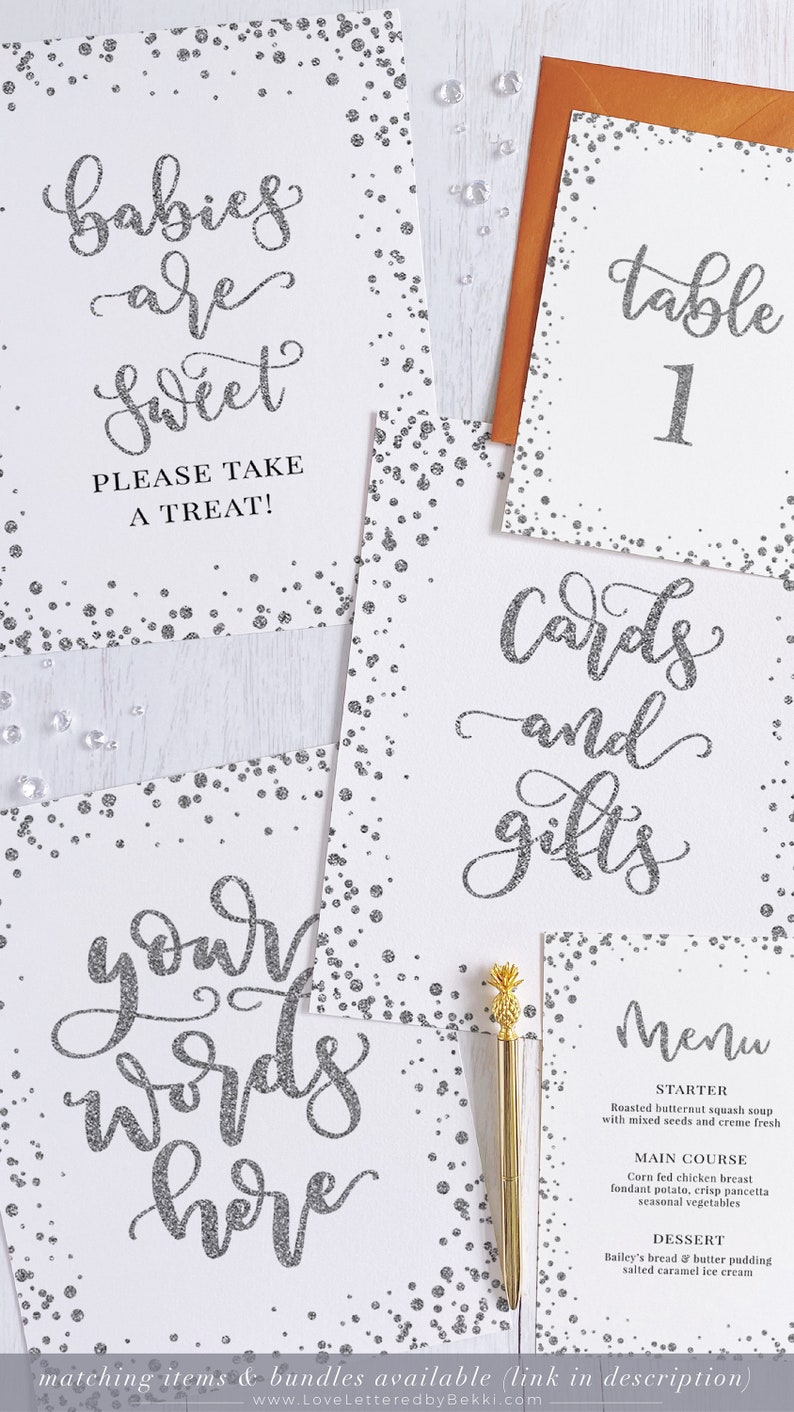 babies
are
sweet
PLEASE TAKE
A TREAT!
table
1
cards
and
gifts
your
words
here
Menu
STARTER
Roasted butternut squash soup
with mixed seeds and creme fresh
MAIN COURSE
Corn fed chicken breast
fondant potato, crisp pancetta
seasonal vegetables
DESSERT
Bailey's bread & butter pudding
salted caramel ice cream
matching items & bundles available (link in description)
www.LoveLetteredbyBekki.com